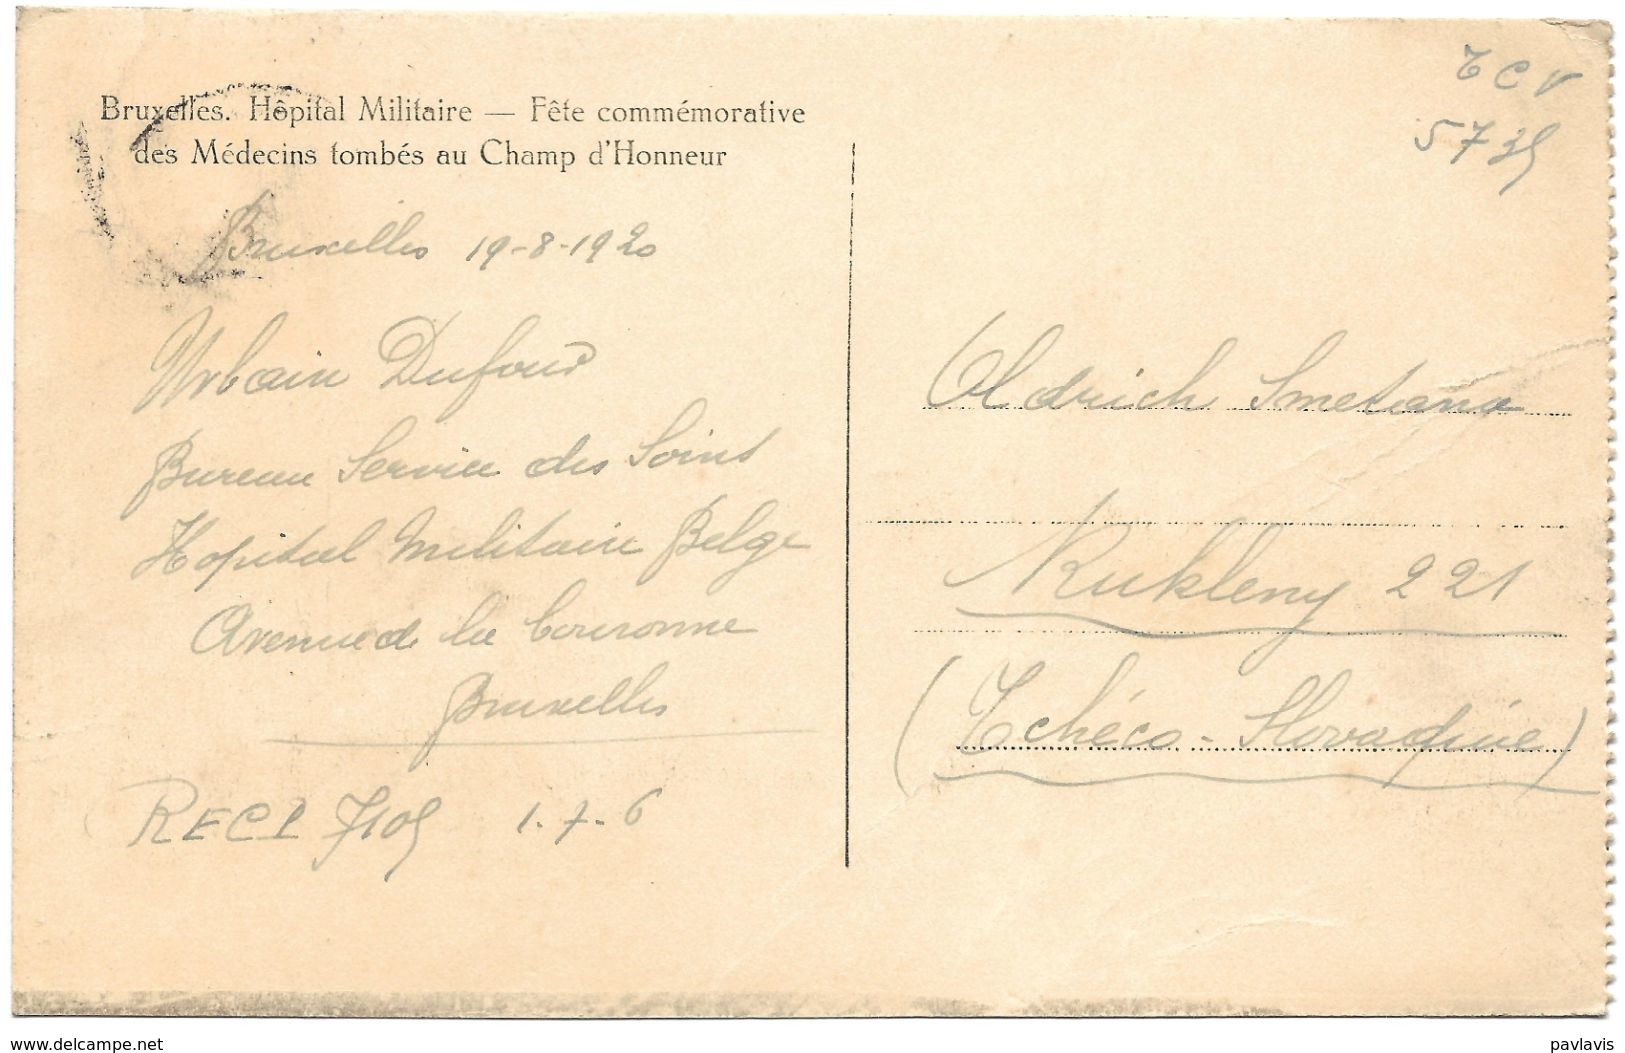 Bruxelles. Hôpital Militaire — Fête commémorative
des Médecins tombés au Champ d'Honneur
Bruxelles 19-8-1920
Urbain Dufour
Bureau Service des Soins
Hopital Militaire Belge
Avenue de la Couronne
Bruxelles
RECL 1-7-6
TCV
Oldrich Smetana
Kukleny 221
(Tchéco-Slovaquie)
www.delcampe.net
pavlavis